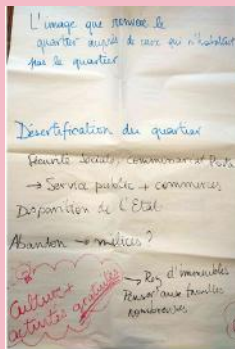 L'image que renvoie le
quartier auprès de ceux qui n'habitent
pas le quartier
Désertification du quartier
Sécurité Sociale, commissariat, Poste
→ Service public + commerces
Disparition de l'Etat
Abandon → milices ?
Culture +
activités gratuites
→ Rez d'immeubles
Penser aux familles
nombreuses